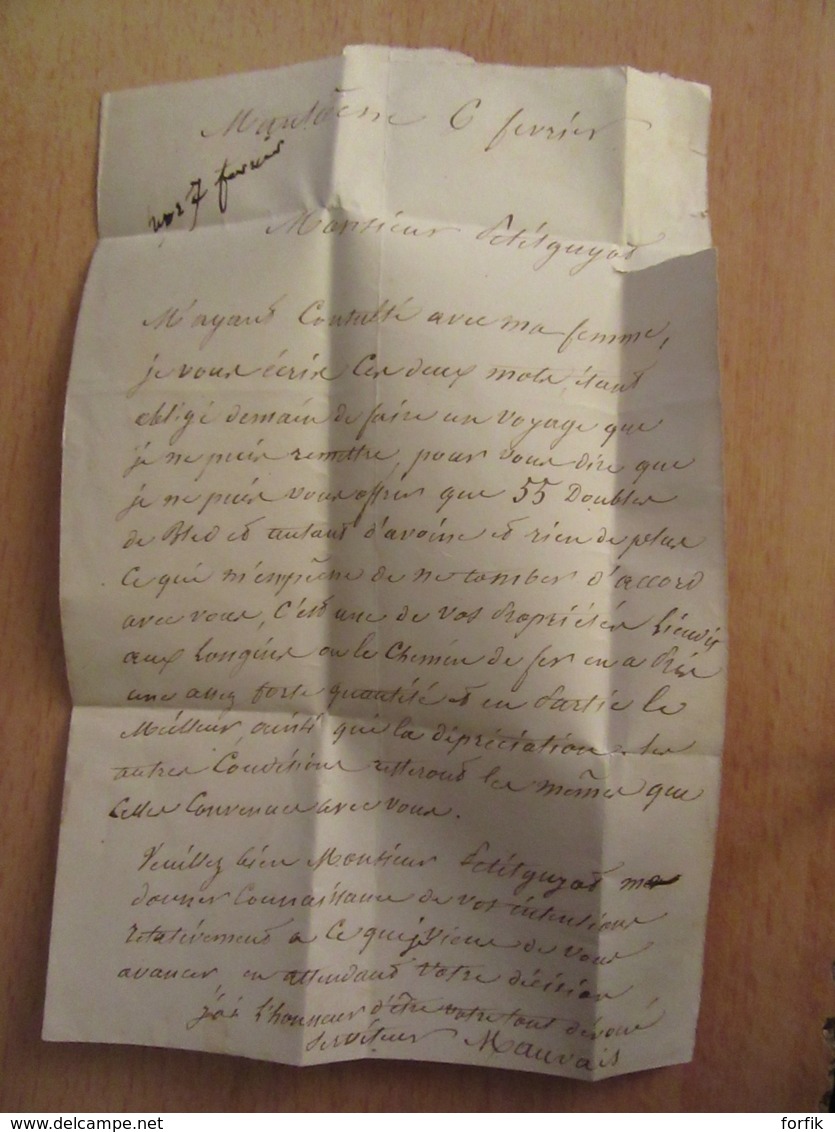 6 fevrier
7 fevrier
Monsieur Petitguyot
M'ayant Consulté avec ma femme,
je vous écris Ces deux mots, étant
obligé demain de faire un voyage que
je ne puis remettre, pour vous dire que
je ne puis vous offrir que 55 Doubles
de Bled et autant d'avoine et rien de plus
Ce qui m'empèche de ne tomber d'accord
avec vous, C'est une de vos propriétés Lieudit
aux Longines ou le Chemin de fer en a pris
une assez forte quantité et en partie le
Meilleur, ainsi que la dépréciation les
autres Conditions resteront les mêmes que
Celles Convenues avec vous.
Veuillez bien Monsieur Petitguyot me
donner Connaissance de vos intentions
relativement a Ce que je viens de vous
avancer, en attendant votre décision
j'ai L'honneur d'être votre tout dévoué
Serviteur Mauvais
forfik